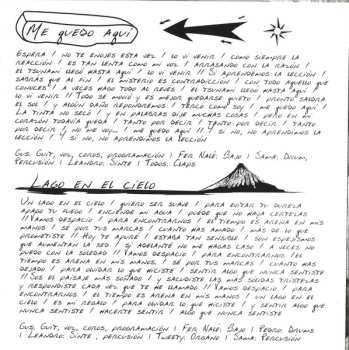 ME QUEDO AQUÍ
ESPERA ! NO TE ENOJES ESTA VEZ ! LO VI VENIR ! COMO SIEMPRE LA
REACCIÓN ! ES TAN LENTA COMO MI VOZ ! ARRASANDO CON LA RAZÓN !
EL TSUNAMI LLEGÓ HASTA AQUÍ ! LO VI VENIR !! SI APRENDEMOS LA LECCIÓN !
SABRÁS QUE AL FIN ! EL MISTERIO ES CONTRADICCIÓN ! CON TODO AQUELLO QUE
CONOCES ! A VECES HAGO TODO AL REVÉS ! EL TSUNAMI LLEGÓ HASTA AQUÍ !
LO VI VENIR !! TODO SE MOVIÓ Y ES MEJOR QUEDARSE QUIETO ! PRONTO SALDRÁ
EL SOL ! Y ALGÚN DAÑO REPONDREMOS ! TERCO COMO SOY ! ME QUEDO AQUÍ !
LA TINTA NO SECÓ ! Y EN PALABRAS DIJE MUCHAS COSAS ! PERO EN MI
CORAZÓN TODAVÍA QUEDA ! TANTO POR DECIR ! TANTO POR DECIR ! TANTO
POR DECIR ! NO ME VOY.. ! ME QUEDO AQUÍ !! Y SI NO, NO APRENDIMOS LA
LECCIÓN ! Y SI NO, NO APRENDIMOS LA LECCIÓN
GUS: GUIT, VOZ, COROS, PROGRAMACIÓN ! FER NALÉ: BAJO ! SAMA: DRUMS,
PERCUSIÓN ! LEANDRO: SINTE ! TODOS: CLAPS
LAGO EN EL CIELO
UN LAGO EN EL CIELO ! QUIERO SER SUAVE ! PARA EVITAR TU DUREZA
APAGO TU FUEGO ! ENCIENDO MI AGUA ! PUEDE QUE NO HAYA CERTEZAS
!! VAMOS DESPACIO ! PARA ENCONTRARNOS ! EL TIEMPO ES ARENA EN MIS
MANOS ! SÉ POR TUS MARCAS ! CUÁNTO HAS AMADO ! MÁS DE LO QUE
PROMETISTE !! HOY TE APURÉ ! ESTABA TAN SENSIBLE ! SON ESPEJISMOS
QUE AUMENTAN LA SED ! SI ADELANTO NO ME HAGAS CASO ! A VECES NO
PUEDO CON LA SOLEDAD !! VAMOS DESPACIO ! PARA ENCONTRARNOS ! EL
TIEMPO ES ARENA EN MIS MANOS, ! SÉ POR TUS MARCAS ! CUÁNTO HAS
DEJADO ! PARA OLVIDAR LO QUE HICISTE ! SENTIR ALGO QUE NUNCA SENTISTE
!! SOS EL PAISAJE MÁS SOÑADO ! Y SACUDISTE LAS MÁS SÓLIDAS TRISTEZAS
Y RESPONDISTE CADA VEZ QUE TE HE LLAMADO !! VAMOS DESPACIO ! PARA
ENCONTRARNOS ! EL TIEMPO ES ARENA EN MIS MANOS ! UN LAGO EN EL
CIELO ! ES MI REGALO ! PARA OLVIDAR LO QUE HICISTE ! Y SENTIR ALGO QUE
NUNCA SENTISTE ! HACERTE SENTIR ! ALGO QUE NUNCA SENTISTE
GUS: GUIT, VOZ, COROS, PROGRAMACIÓN ! FER NALÉ: BAJO ! PEDRO: DRUMS
! LEANDRO: SINTE , PERCUSIÓN ! TWEETY: ÓRGANO ! SAMA: PERCUSIÓN